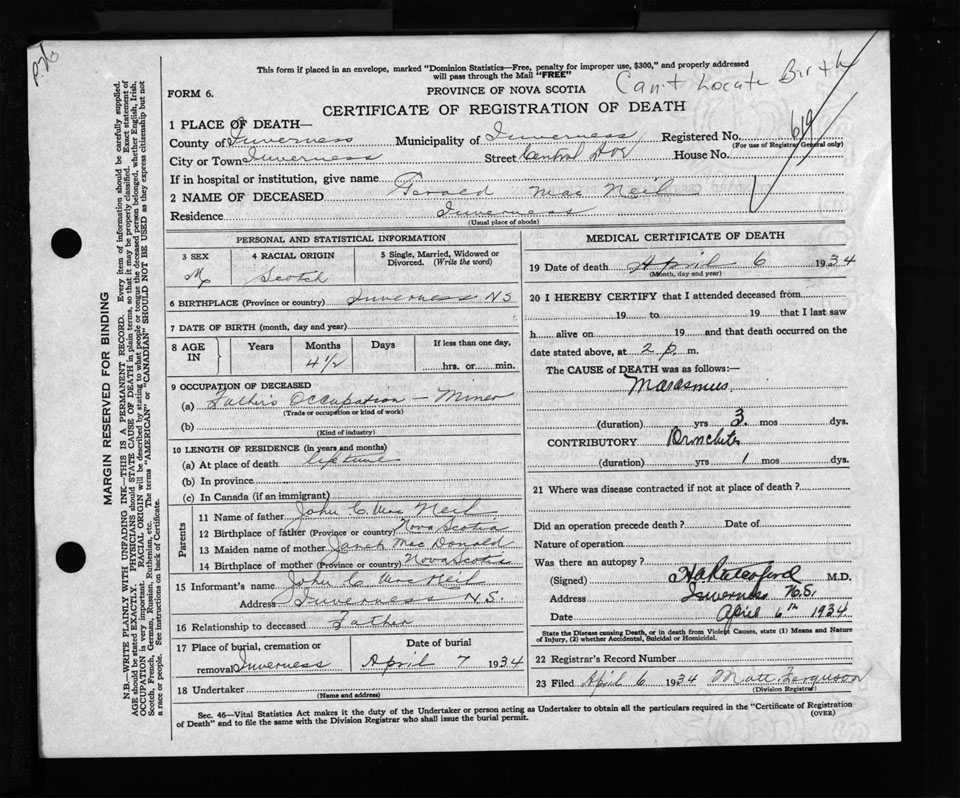 This form if placed in an envelope, marked "Dominion Statistics—Free, penalty for improper use, $300," and properly addressed
will pass through the Mail "FREE"
Can't Locate Birth
FORM 6.
PROVINCE OF NOVA SCOTIA
CERTIFICATE OF REGISTRATION OF DEATH
1 PLACE OF DEATH—
County of Inverness Municipality of Inverness Registered No. 619
(For use of Registrar General only)
City or Town Inverness Street Central Ave House No.
If in hospital or institution, give name
2 NAME OF DECEASED Gerald Mac Neil
Residence Inverness
(Usual place of abode)
PERSONAL AND STATISTICAL INFORMATION
3 SEX 4 RACIAL ORIGIN 5 Single, Married, Widowed or Divorced. (Write the word)
M Scotch
6 BIRTHPLACE (Province or country) Inverness N S
7 DATE OF BIRTH (month, day and year)
8 AGE IN Years Months Days If less than one day,
4 1/2 hrs. or min.
9 OCCUPATION OF DECEASED
(a) Father's Occupation — Miner
(Trade or occupation or kind of work)
(b)
(Kind of industry)
10 LENGTH OF RESIDENCE (in years and months)
(a) At place of death life time
(b) In province
(c) In Canada (if an immigrant)
Parents
11 Name of father John C. Mac Neil
12 Birthplace of father (Province or country) Nova Scotia
13 Maiden name of mother Mac Donald
14 Birthplace of mother (Province or country) Nova Scotia
15 Informant's name John C Mac Neil
Address Inverness N.S.
16 Relationship to deceased Father
17 Place of burial, cremation or Date of burial
removal Inverness April 7 1934
18 Undertaker
(Name and address)
MEDICAL CERTIFICATE OF DEATH
19 Date of death April 6 1934
(Month, day and year)
20 I HEREBY CERTIFY that I attended deceased from
19 to 19 that I last saw
h alive on 19 and that death occurred on
date stated above, at 2 p. m.
The CAUSE of DEATH was as follows:—
Marasmus
(duration) yrs 3 mos dys.
CONTRIBUTORY Bronchitis
(duration) yrs 1 mos dys.
21 Where was disease contracted if not at place of death?
Did an operation precede death? Date of
Nature of operation
Was there an autopsy?
(Signed) M.D.
Address Inverness N.S.
Date April 6th 1934
State the Disease causing Death, or in death from Violent Causes, state (1) Means and Nature
of Injury, (2) whether Accidental, Suicidal or Homicidal.
22 Registrar's Record Number
23 Filed April 6 1934 Matt. Ferguson
(Division Registrar)
Sec. 46—Vital Statistics Act makes it the duty of the Undertaker or person acting as Undertaker to obtain all the particulars required in the "Certificate of Registration
of Death" and to file the same with the Division Registrar who shall issue the burial permit.
(OVER)
MARGIN RESERVED FOR BINDING
N.B.—WRITE PLAINLY WITH UNFADING INK—THIS IS A PERMANENT RECORD. Every item of information should be carefully supplied.
AGE should be stated EXACTLY. PHYSICIANS should STATE CAUSE OF DEATH in plain terms, so that it may be properly classified. Exact statement of
OCCUPATION is very important. RACIAL ORIGIN will be described by stating to what people or tongue the deceased person belonged, whether English, Irish,
Scotch, French, German, Russian, Ruthenian, etc. The terms "AMERICAN" or "CANADIAN" SHOULD NOT BE USED as they express citizenship but not
a race or people. See instructions on back of Certificate.